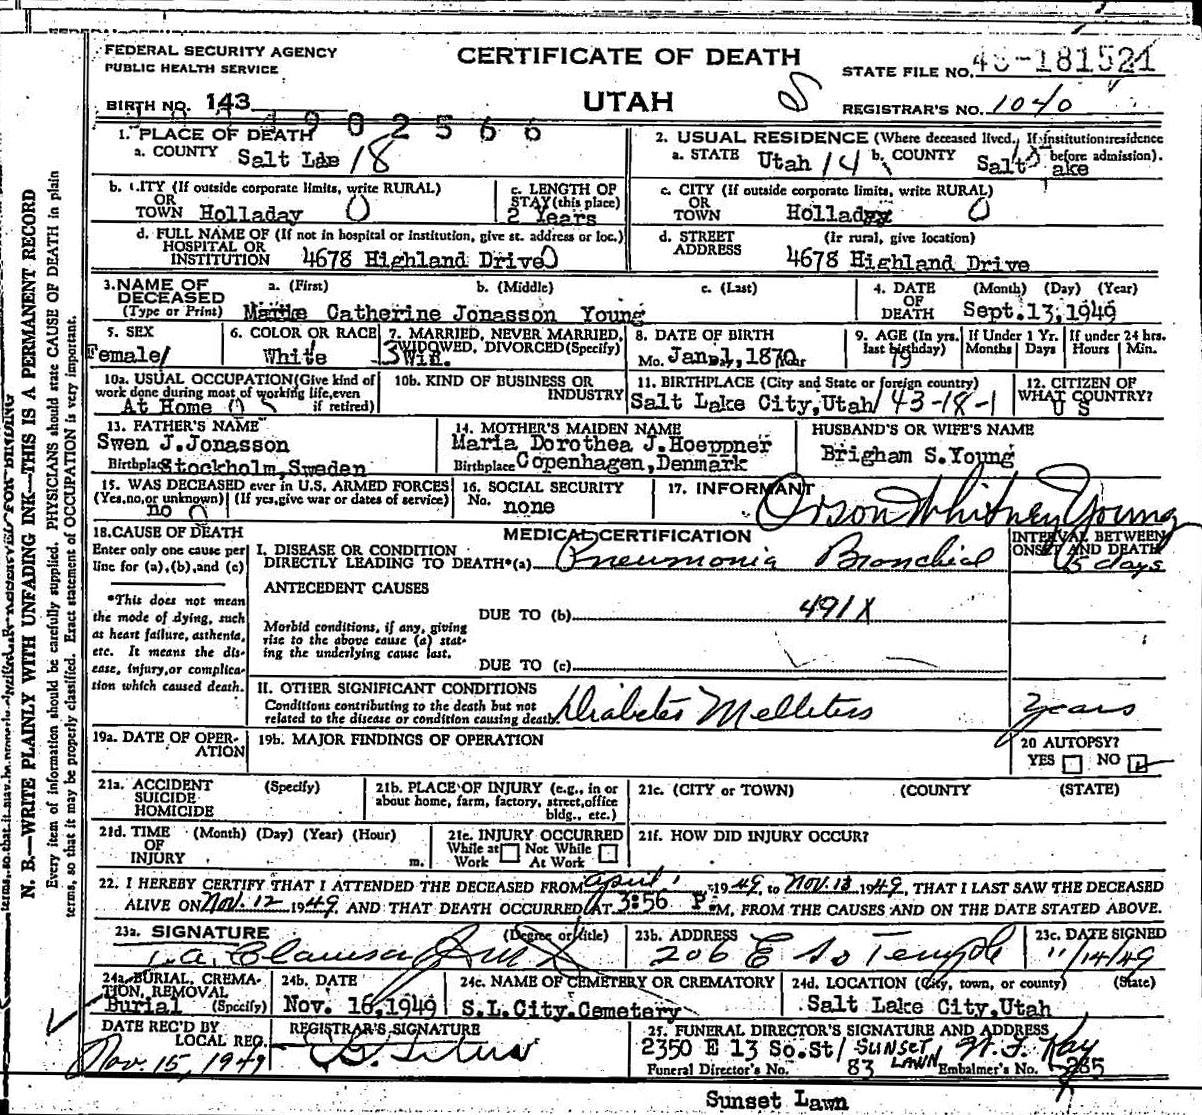 FEDERAL SECURITY AGENCY
PUBLIC HEALTH SERVICE
CERTIFICATE OF DEATH
STATE FILE NO. 48-181521
BIRTH NO. 143
UTAH
REGISTRAR'S NO. 1040
4902566
1. PLACE OF DEATH
a. COUNTY Salt Lae 18
2. USUAL RESIDENCE (Where deceased lived. If institution: residence before admission).
a. STATE Utah 14 b. COUNTY Salt Lake
b. CITY (If outside corporate limits, write RURAL) OR TOWN Holladay 0
c. LENGTH OF STAY (this place) 2 Years
c. CITY (If outside corporate limits, write RURAL) OR TOWN Holladay 0
d. FULL NAME OF (If not in hospital or institution, give st. address or loc.) HOSPITAL OR INSTITUTION 4678 Highland Drive 0
d. STREET ADDRESS (If rural, give location) 4678 Highland Drive
3. NAME OF DECEASED (Type or Print) a. (First) b. (Middle) c. (Last)
Catherine Jonasson Young
4. DATE OF DEATH (Month) (Day) (Year) Sept. 13, 1949
5. SEX Female
6. COLOR OR RACE White
7. MARRIED, NEVER MARRIED, WIDOWED, DIVORCED (Specify) 3 Wid.
8. DATE OF BIRTH Mo. Jan. 1, 1870
9. AGE (In yrs. last birthday) 79
If Under 1 Yr. Months Days
If under 24 hrs. Hours Min.
10a. USUAL OCCUPATION (Give kind of work done during most of working life, even if retired) At Home
10b. KIND OF BUSINESS OR INDUSTRY
11. BIRTHPLACE (City and State or foreign country) Salt Lake City, Utah / 43-18-1
12. CITIZEN OF WHAT COUNTRY? U S
13. FATHER'S NAME
Swen J. Jonasson
Birthplace Stockholm, Sweden
14. MOTHER'S MAIDEN NAME
Maria Dorothea J. Hoeppner
Birthplace Copenhagen, Denmark
HUSBAND'S OR WIFE'S NAME
Brigham S. Young
15. WAS DECEASED ever in U.S. ARMED FORCES (Yes, no, or unknown) (If yes, give war or dates of service) no 0
16. SOCIAL SECURITY No. none
17. INFORMANT Orson Whitney Young
18. CAUSE OF DEATH
Enter only one cause per line for (a), (b), and (c)
MEDICAL CERTIFICATION
INTERVAL BETWEEN ONSET AND DEATH
I. DISEASE OR CONDITION DIRECTLY LEADING TO DEATH* (a) Pneumonia Bronchial 5 days
*This does not mean the mode of dying, such as heart failure, asthenia, etc. It means the disease, injury, or complication which caused death.
ANTECEDENT CAUSES
DUE TO (b) 491X
Morbid conditions, if any, giving rise to the above cause (a) stating the underlying cause last.
DUE TO (c)
II. OTHER SIGNIFICANT CONDITIONS
Conditions contributing to the death but not related to the disease or condition causing death. Diabetes Melletus years
19a. DATE OF OPERATION
19b. MAJOR FINDINGS OF OPERATION
20 AUTOPSY? YES NO
21a. ACCIDENT SUICIDE HOMICIDE (Specify)
21b. PLACE OF INJURY (e.g., in or about home, farm, factory, street, office bldg., etc.)
21c. (CITY or TOWN) (COUNTY (STATE)
21d. TIME OF INJURY (Month) (Day) (Year) (Hour) m.
21e. INJURY OCCURRED While at Work Not While At Work
21f. HOW DID INJURY OCCUR?
22. I HEREBY CERTIFY THAT I ATTENDED THE DECEASED FROM April 1, 1949, to Nov. 13 1949, THAT I LAST SAW THE DECEASED
ALIVE ON Nov. 12 1949 AND THAT DEATH OCCURRED AT 3:56 P.M., FROM THE CAUSES AND ON THE DATE STATED ABOVE.
23a. SIGNATURE (Degree or title)
23b. ADDRESS 206 E So Temple
23c. DATE SIGNED 11/14/49
24a. BURIAL, CREMATION, REMOVAL (Specify) Burial
24b. DATE Nov. 16, 1949
24c. NAME OF CEMETERY OR CREMATORY S.L. City. Cemetery
24d. LOCATION (City, town, or county) (State) Salt Lake City, Utah
DATE REC'D BY LOCAL REG. Nov. 15, 1949
REGISTRAR'S SIGNATURE
25. FUNERAL DIRECTOR'S SIGNATURE AND ADDRESS
2350 E 13 So. St / SUNSET LAWN
Funeral Director's No. 83 Embalmer's No. 265
Sunset Lawn
N. B.—WRITE PLAINLY WITH UNFADING INK—THIS IS A PERMANENT RECORD
Every item of information should be carefully supplied. PHYSICIANS should state CAUSE OF DEATH in plain
terms, so that it may be properly classified. Exact statement of OCCUPATION is very important.